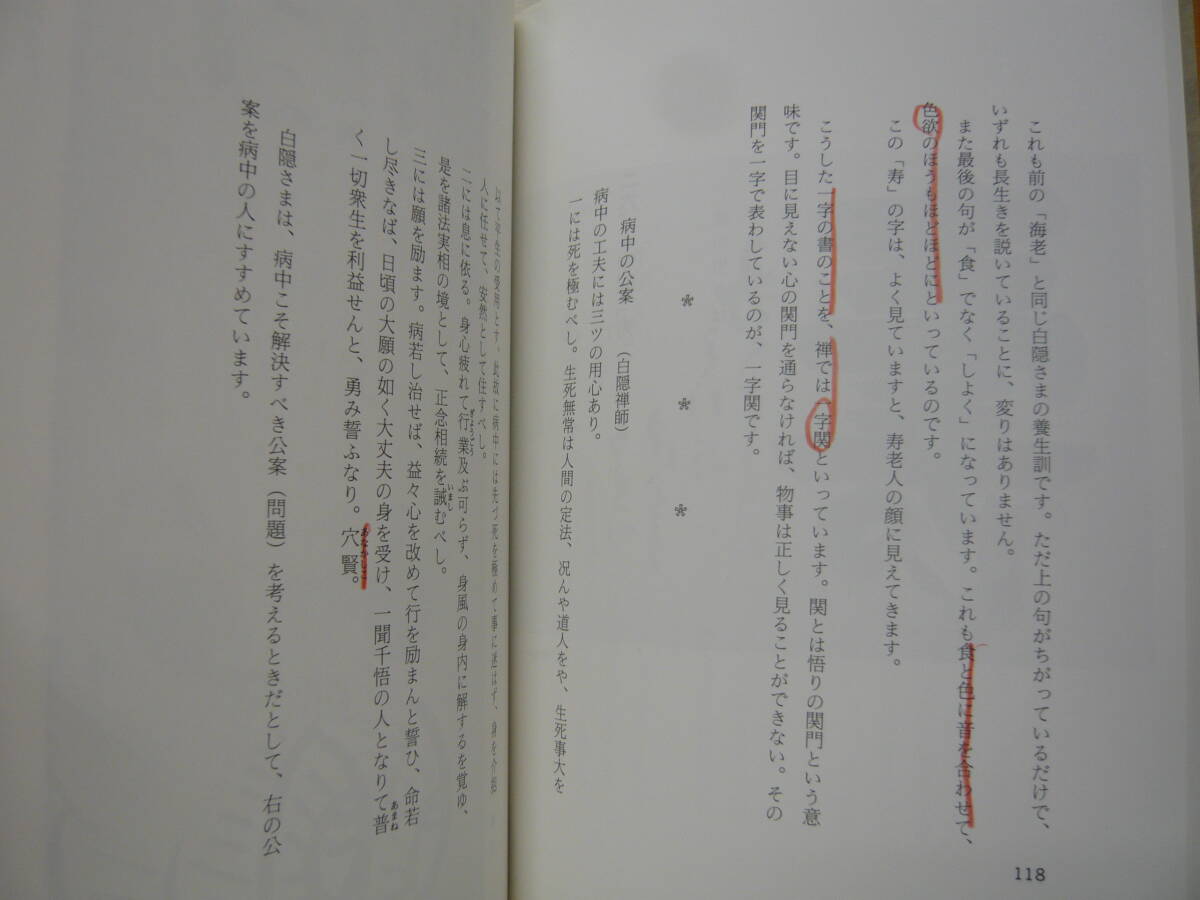 これも前の「海老」と同じ白隠さまの養生訓です。ただ上の句がちがっているだけで、
いずれも長生きを説いていることに、変りはありません。
また最後の句が「食」でなく「しよく」になっています。これも食と色に音を合わせて、
色欲のほうもほどほどにといっているのです。
この「寿」の字は、よく見ていますと、寿老人の顔に見えてきます。
こうした一字の書のことを、禅では一字関といっています。関とは悟りの関門という意
味です。目に見えない心の関門を通らなければ、物事は正しく見ることができない。その
関門を一字で表わしているのが、一字関です。
＊　＊　＊
病中の公案　（白隠禅師）
病中の工夫には三ツの用心あり。
一には死を極むべし。生死無常は人間の定法、況んや道人をや、生死事大を
以て平生の受用とす。此故に病中には先づ死を極めて事に迷はず、身を介抱
人に任せて、安然として住すべし。
二には息に依る。身心疲れて行業及ぶ可らず、身風の身内に解するを覚ゆ、
是を諸法実相の境として、正念相続を誡むべし。
三には願を励ます。病若し治せば、益々心を改めて行を励まんと誓ひ、命若
し尽きなば、日頃の大願の如く大丈夫の身を受け、一聞千悟の人となりて普
く一切衆生を利益せんと、勇み誓ふなり。穴賢。
白隠さまは、病中こそ解決すべき公案（問題）を考えるときだとして、右の公
案を病中の人にすすめています。
118